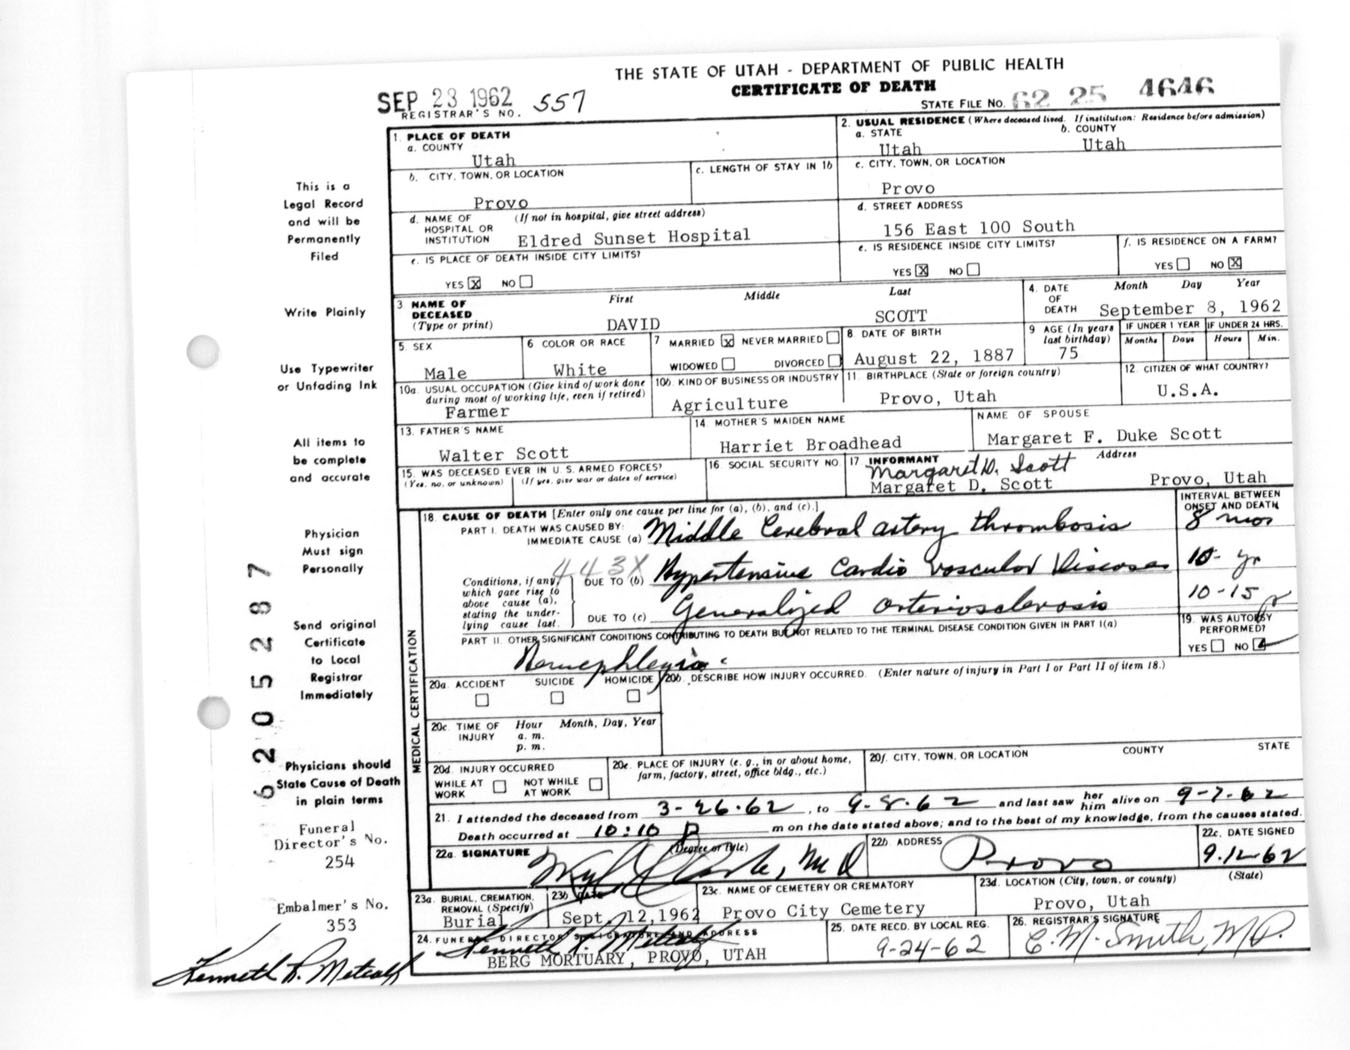 THE STATE OF UTAH - DEPARTMENT OF PUBLIC HEALTH
CERTIFICATE OF DEATH
SEP 23 1962 557
REGISTRAR'S NO.
STATE FILE NO. 62 25 4646
1. PLACE OF DEATH
a. COUNTY
Utah
2. USUAL RESIDENCE (Where deceased lived. If institution: Residence before admission)
a. STATE b. COUNTY
Utah Utah
b. CITY, TOWN, OR LOCATION
Provo
c. LENGTH OF STAY IN 1b
c. CITY, TOWN, OR LOCATION
Provo
d. NAME OF HOSPITAL OR INSTITUTION (If not in hospital, give street address)
Eldred Sunset Hospital
d. STREET ADDRESS
156 East 100 South
e. IS PLACE OF DEATH INSIDE CITY LIMITS?
YES X NO
e. IS RESIDENCE INSIDE CITY LIMITS?
YES X NO
f. IS RESIDENCE ON A FARM?
YES NO X
3 NAME OF DECEASED (Type or print)
First Middle Last
DAVID SCOTT
4. DATE OF DEATH Month Day Year
September 8, 1962
5. SEX
Male
6 COLOR OR RACE
White
7 MARRIED X NEVER MARRIED
WIDOWED DIVORCED
8 DATE OF BIRTH
August 22, 1887
9 AGE (In years last birthday)
75
IF UNDER 1 YEAR
Months Days
IF UNDER 24 HRS.
Hours Min.
10a. USUAL OCCUPATION (Give kind of work done during most of working life, even if retired)
Farmer
10b. KIND OF BUSINESS OR INDUSTRY
Agriculture
11. BIRTHPLACE (State or foreign country)
Provo, Utah
12. CITIZEN OF WHAT COUNTRY?
U.S.A.
13. FATHER'S NAME
Walter Scott
14 MOTHER'S MAIDEN NAME
Harriet Broadhead
NAME OF SPOUSE
Margaret F. Duke Scott
15. WAS DECEASED EVER IN U. S. ARMED FORCES?
(Yes, no, or unknown) (If yes, give war or dates of service)
16 SOCIAL SECURITY NO
17 INFORMANT Address
Margaret D. Scott
Margaret D. Scott Provo, Utah
18. CAUSE OF DEATH [Enter only one cause per line for (a), (b), and (c).]
INTERVAL BETWEEN ONSET AND DEATH
PART I. DEATH WAS CAUSED BY:
IMMEDIATE CAUSE (a) Middle Cerebral artery thrombosis 8 mos
443X
Conditions, if any, which gave rise to above cause (a), stating the underlying cause last.
DUE TO (b) Hypertensive Cardio vascular Disease 10- yr
DUE TO (c) Generalized arteriosclerosis 10-15 yr
PART II. OTHER SIGNIFICANT CONDITIONS CONTRIBUTING TO DEATH BUT NOT RELATED TO THE TERMINAL DISEASE CONDITION GIVEN IN PART I(a)
19. WAS AUTOPSY PERFORMED?
YES NO
20a. ACCIDENT SUICIDE HOMICIDE
20b. DESCRIBE HOW INJURY OCCURRED. (Enter nature of injury in Part I or Part II of item 18.)
20c. TIME OF INJURY
Hour Month, Day, Year
a. m.
p. m.
20d. INJURY OCCURRED
WHILE AT WORK NOT WHILE AT WORK
20e. PLACE OF INJURY (e. g., in or about home, farm, factory, street, office bldg., etc.)
20f. CITY, TOWN, OR LOCATION COUNTY STATE
21. I attended the deceased from 3-26-62, to 9-8-62 and last saw her him alive on 9-7-62
Death occurred at 10:10 P m on the date stated above; and to the best of my knowledge, from the causes stated.
22a. SIGNATURE (Degree or title)
M D
22b. ADDRESS
Provo
22c. DATE SIGNED
9-12-62
23a. BURIAL, CREMATION, REMOVAL (Specify)
Burial
23b. DATE
Sept. 12, 1962
23c. NAME OF CEMETERY OR CREMATORY
Provo City Cemetery
23d. LOCATION (City, town, or county) (State)
Provo, Utah
24. FUNERAL DIRECTOR'S SIGNATURE AND ADDRESS
Kenneth R. Metcalf
BERG MORTUARY, PROVO, UTAH
25. DATE RECD. BY LOCAL REG.
9-24-62
26. REGISTRAR'S SIGNATURE
C. M. Smith, M.D.
MEDICAL CERTIFICATION
This is a
Legal Record
and will be
Permanently
Filed
Write Plainly
Use Typewriter
or Unfading Ink
All items to
be complete
and accurate
Physician
Must sign
Personally
Send original
Certificate
to Local
Registrar
Immediately
Physicians should
State Cause of Death
in plain terms
Funeral
Director's No.
254
Embalmer's No.
353
Kenneth R. Metcalf
6205287